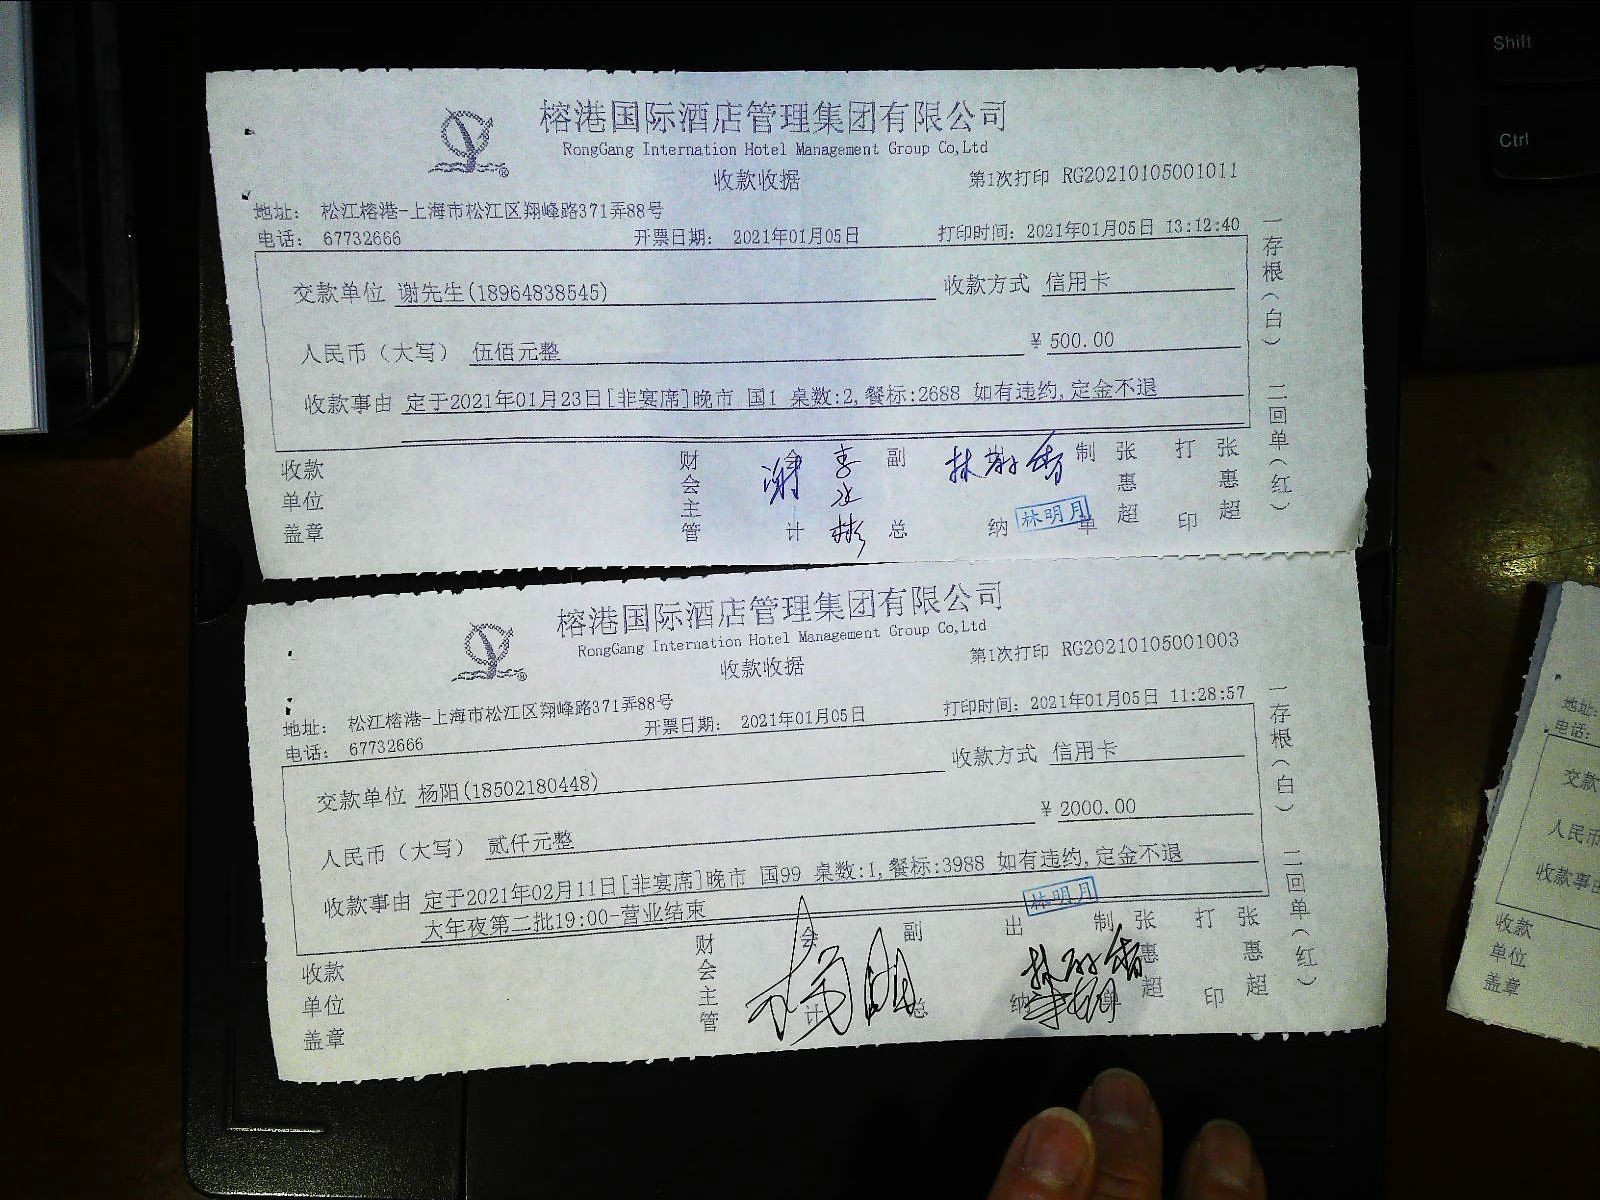 Shift
Ctrl
榕港国际酒店管理集团有限公司
RongGang Internation Hotel Management Group Co,Ltd
收款收据
第1次打印 RG20210105001011
地址： 松江榕港-上海市松江区翔峰路371弄88号
电话： 67732666
开票日期： 2021年01月05日
打印时间：2021年01月05日 13:12:40
交款单位 谢先生(18964838545)
收款方式 信用卡
人民币（大写） 伍佰元整
¥ 500.00
收款事由 定于2021年01月23日[非宴席]晚市 国1 桌数:2,餐标:2688 如有违约,定金不退
收款单位盖章
财会主管
会计
谢
李
彬
副总
纳
林明月
制单
张惠超
打印
张惠超
一存根（白） 二回单（红）
榕港国际酒店管理集团有限公司
RongGang Internation Hotel Management Group Co,Ltd
收款收据
第1次打印 RG20210105001003
地址： 松江榕港-上海市松江区翔峰路371弄88号
电话： 67732666
开票日期： 2021年01月05日
打印时间：2021年01月05日 11:28:57
交款单位 杨阳(18502180448)
收款方式 信用卡
人民币（大写） 贰仟元整
¥ 2000.00
收款事由 定于2021年02月11日[非宴席]晚市 国99 桌数:1,餐标:3988 如有违约,定金不退
大年夜第二批19:00-营业结束
收款单位盖章
财会主管
会计
副总
出纳
林明月
制单
张惠超
打印
张惠超
一存根（白） 二回单（红）
地址：
电话：
交款
人民币
收款事由
收款
单位
盖章